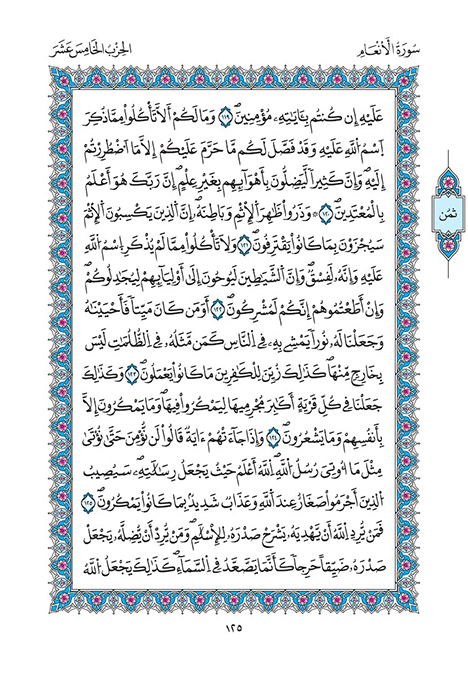 سُورَةُ الْأَنْعَامِ
الحِزْبُ الْخَامِسَ عَشَرَ
عَلَيْهِ إِن كُنتُم بِـَٔايَٰتِهِۦ مُؤْمِنِينَۖ ١١٩ وَمَا لَكُمُۥٓ أَلَّا تَأْكُلُواْ مِمَّا ذُكِرَ
اَ۪سْمُ اُ۬للَّهِ عَلَيْهِ وَقَدْ فَصَّلَ لَكُم مَّا حَرَّمَ عَلَيْكُمُۥٓ إِلَّا مَا اَ۟ضْطُرِرْتُمُۥٓ
إِلَيْهِۖ وَإِنَّ كَثِيراٗ لَّيَضِلُّونَ بِأَهْوَآئِهِم بِغَيْرِ عِلْمٍۖ اِنَّ رَبَّكَ هُوَ أَعْلَمُ
بِالْمُعْتَدِينَۖ ١٢٠ ۞ وَذَرُواْ ظَٰهِرَ اَ۬لِاثْمِ وَبَاطِنَهُۥٓۖ إِنَّ اَ۬لذِينَ يَكْسِبُونَ اَ۬لِاثْمَ
سَيُجْزَوْنَ بِمَا كَانُواْ يَقْتَرِفُونَۖ ١٢١ وَلَا تَأْكُلُواْ مِمَّا لَمْ يُذْكَرِ اِ۪سْمُ اُ۬للَّهِ
عَلَيْهِ وَإِنَّهُۥ لَفِسْقٞۖ وَإِنَّ اَ۬لشَّيَٰطِينَ لَيُوحُونَ إِلَىٰٓ أَوْلِيَآئِهِمْ لِيُجَٰدِلُوكُمْۖ
وَإِنَ اَطَعْتُمُوهُمُۥٓ إِنَّكُمْ لَمُشْرِكُونَۖ ١٢٢ أَوَمَن كَانَ مَيِّتاٗ فَأَحْيَيْنَٰهُ
وَجَعَلْنَا لَهُۥ نُوراٗ يَمْشِے بِهِۦ فِے اِ۬لنَّاسِ كَمَن مَّثَلُهُۥ فِے اِ۬لظُّلُمَٰتِ لَيْسَ
بِخَارِجٖ مِّنْهَاۖ كَذَٰلِكَ زُيِّنَ لِلْكَٰفِرِينَ مَا كَانُواْ يَعْمَلُونَۖ ١٢٣ وَكَذَٰلِكَ
جَعَلْنَا فِے كُلِّ قَرْيَةٍ اَكَٰبِرَ مُجْرِمِيهَا لِيَمْكُرُواْ فِيهَاۖ وَمَا يَمْكُرُونَ إِلَّا
بِأَنفُسِهِمْ وَمَا يَشْعُرُونَۖ ١٢٤ وَإِذَا جَآءَتْهُمُۥٓ ءَايَةٞ قَالُواْ لَن نُّؤْمِنَ حَتَّىٰ نُؤْت۪ىٰ
مِثْلَ مَآ أُوتِيَ رُسُلُ اُ۬للَّهِۖ اِ۬للَّهُ أَعْلَمُ حَيْثُ يَجْعَلُ رِسَٰلَٰتِهِۦۖ سَيُصِيبُ
اُ۬لذِينَ أَجْرَمُواْ صَغَارٌ عِندَ اَ۬للَّهِ وَعَذَابٞ شَدِيدُۢ بِمَا كَانُواْ يَمْكُرُونَۖ ١٢٥
فَمَنْ يُّرِدِ اِ۬للَّهُ أَنْ يَّهْدِيَهُۥ يَشْرَحْ صَدْرَهُۥ لِلِاسْلَٰمِۖ وَمَنْ يُّرِدَ اَنْ يُّضِلَّهُۥ يَجْعَلْ
صَدْرَهُۥ ضَيِّقاً حَرِجاٗ كَأَنَّمَا يَصَّعَّدُ فِے اِ۬لسَّمَآءِۖ كَذَٰلِكَ يَجْعَلُ اُ۬للَّهُ
ثُمُن
١٢٥